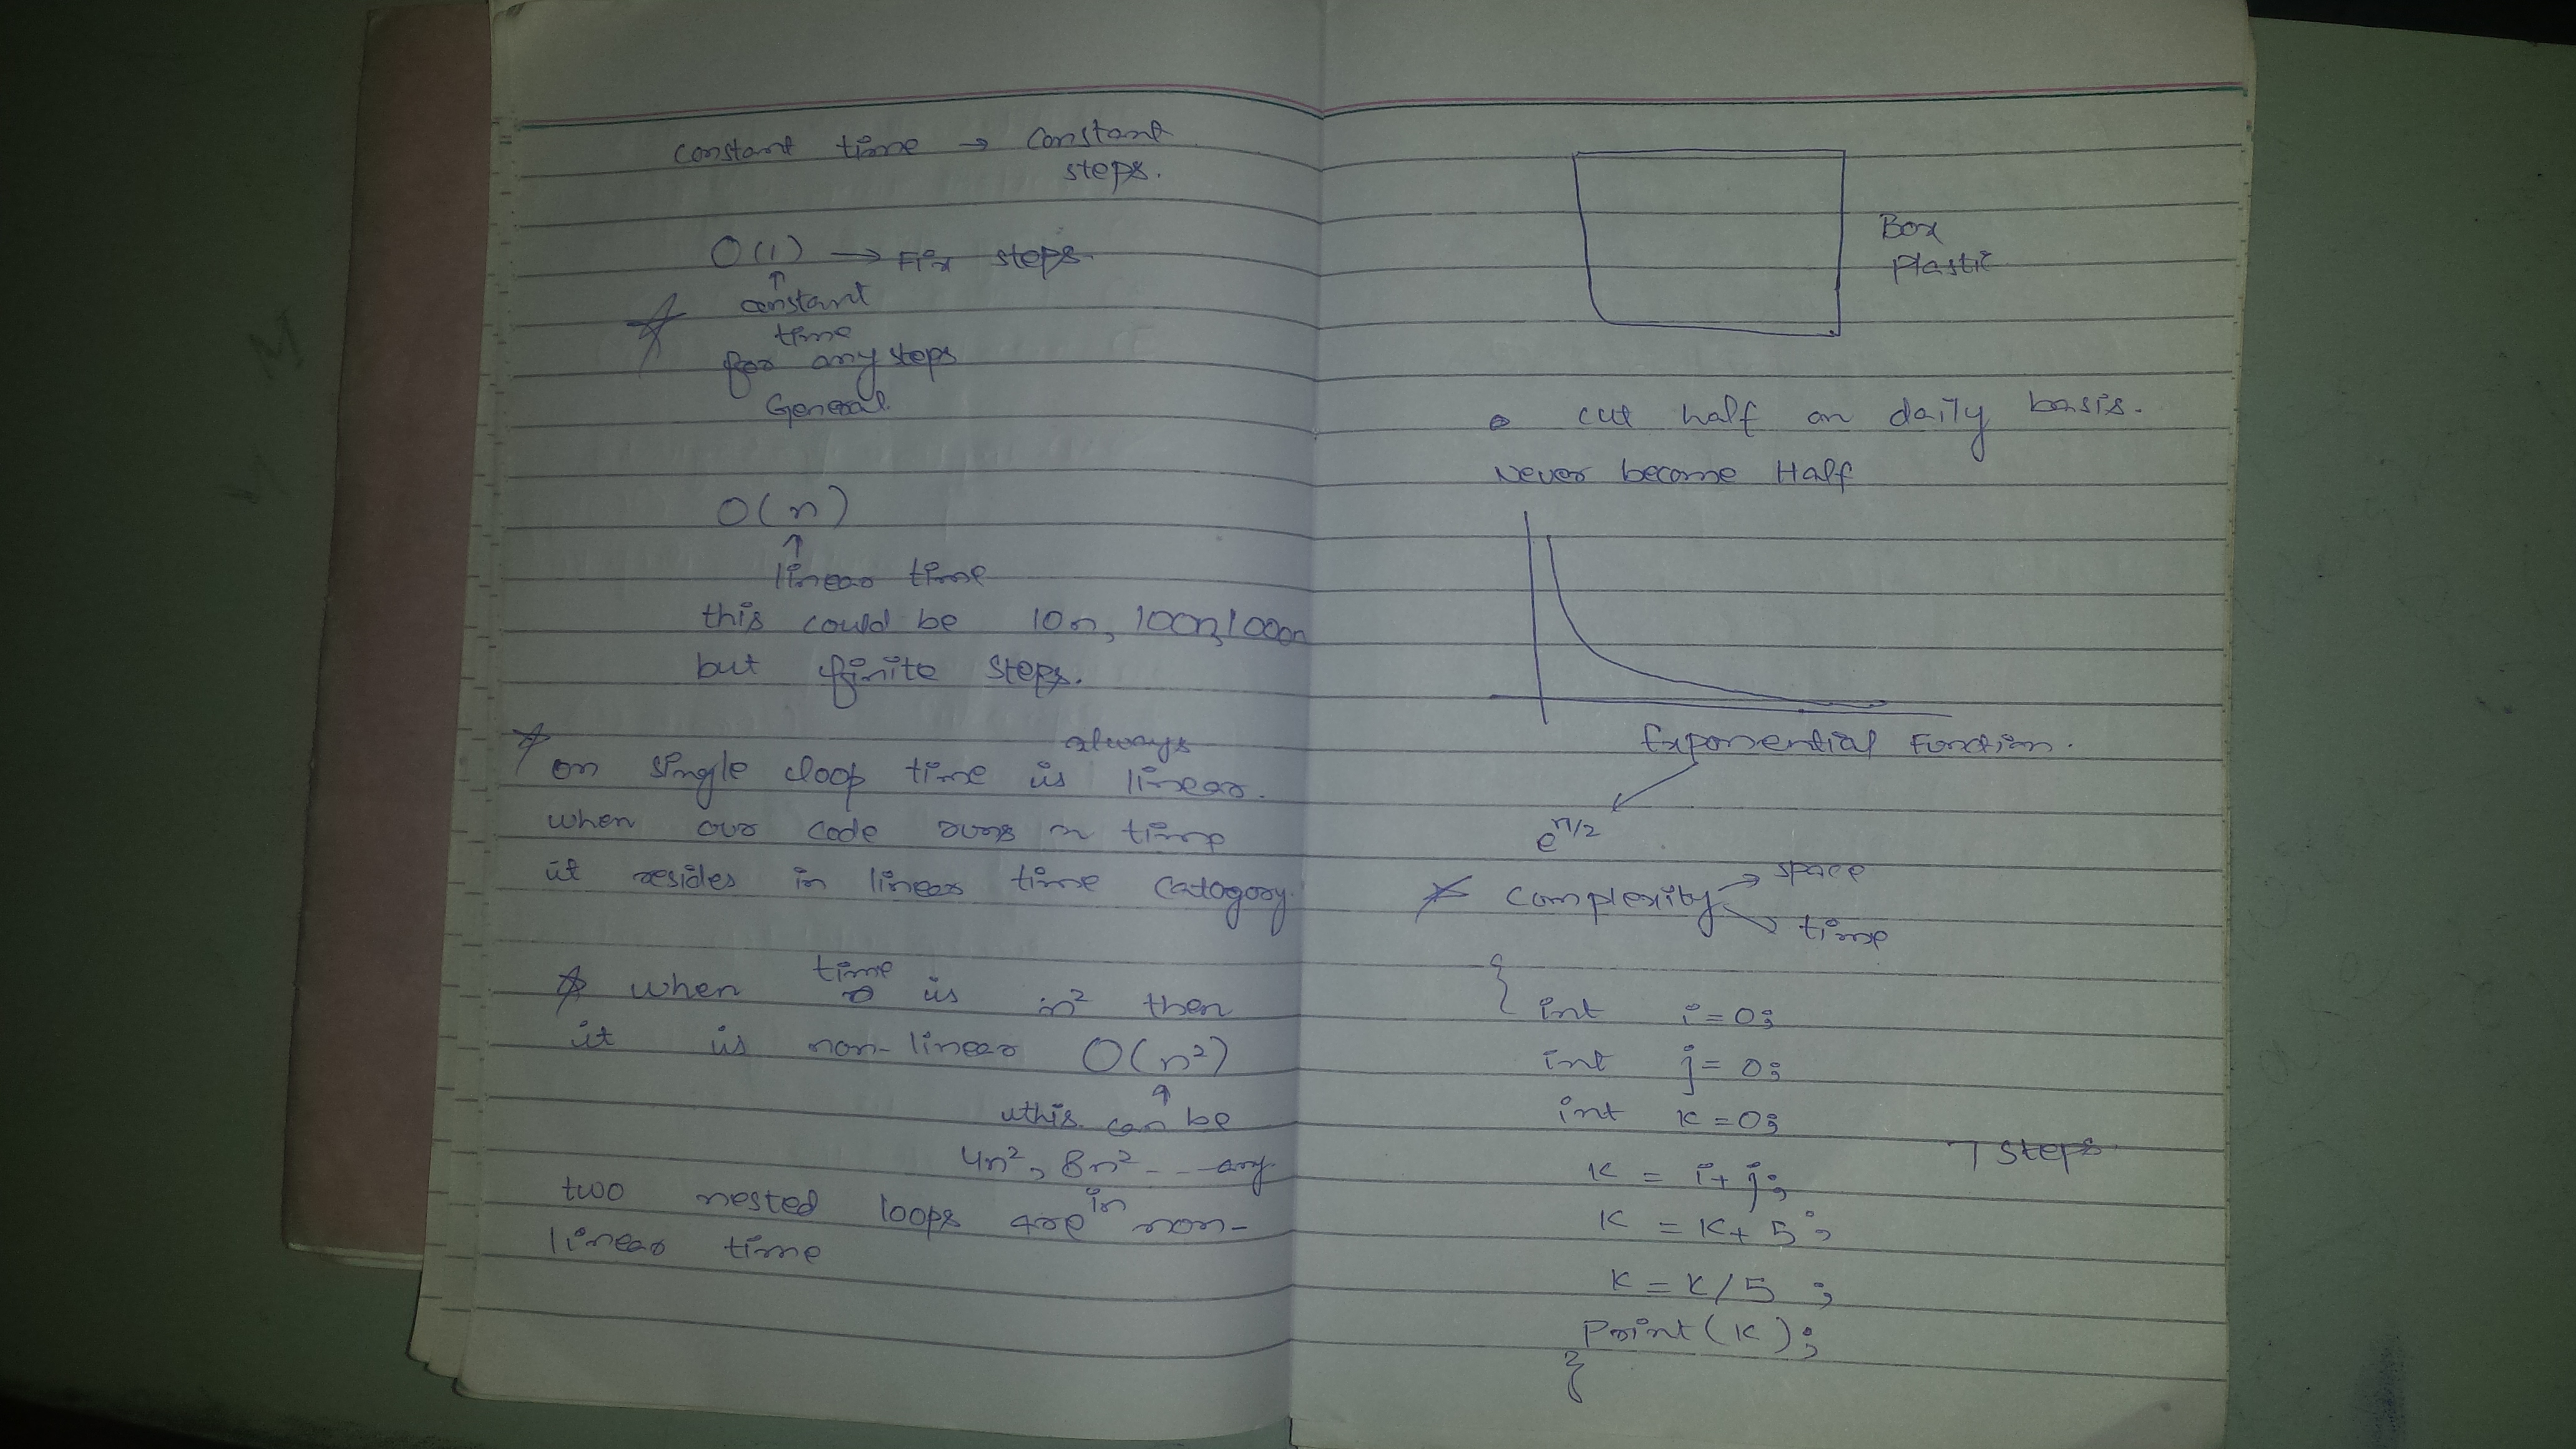 constant time → constant
steps.
O(1) → Fix steps.
↑
constant
time
for any steps
General.
O(n)
↑
linear time
this could be 10n, 100n, 1000n
but finite steps.
always
on single loop time is linear.
when our code runs n time
it resides in linear time catogory.
time
when is n² then
it is non-linear O(n²)
↑
this can be
4n², 8n² - - any.
in
two nested loops are non-
linear time
Box
Plastic
cut half on daily basis.
Never become Half
Exponential Function.
e^n/2
space
Complexity
time
{
int i=0;
int j=0;
int k=0;
7 steps
k = i+j;
k = k+5;
k = k/5 ;
Print(k);
}